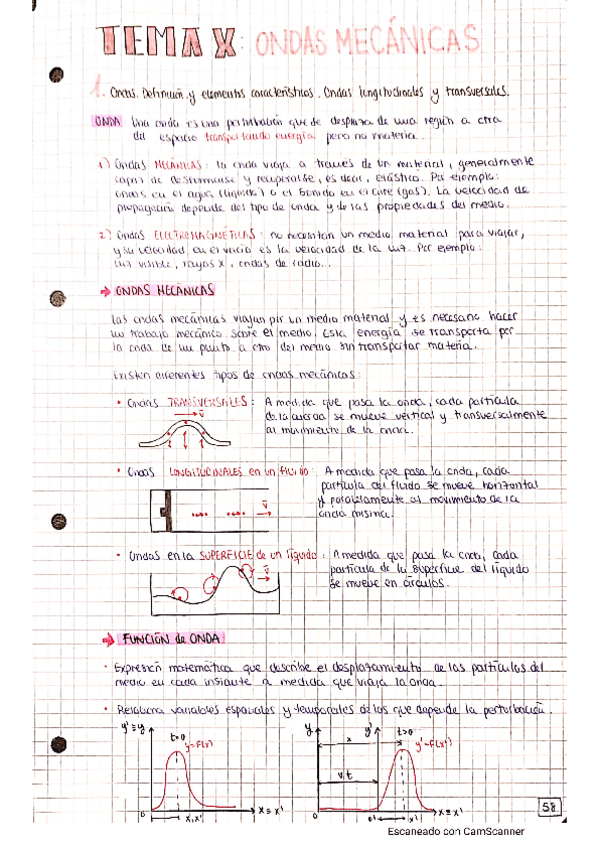 TEMA X: ONDAS MECÁNICAS
1. Ondas. Definición y elementos característicos. Ondas longitudinales y transversales.
ONDA Una onda es una perturbación que se desplaza de una región a otra
del espacio transportando energía pero no materia.
1) Ondas MECÁNICAS: la onda viaja a través de un material, generalmente
capaz de deformarse y recuperarse, es decir, elástico. Por ejemplo:
ondas en el agua (líquido) o el sonido en el aire (gas). La velocidad de
propagación depende del tipo de onda y de las propiedades del medio.
2) Ondas ELECTROMAGNÉTICAS: no necesitan un medio material para viajar,
y su velocidad en el vacío es la velocidad de la luz. Por ejemplo:
luz visible, rayos X, ondas de radio...
→ ONDAS MECÁNICAS
Las ondas mecánicas viajan por un medio material y es necesario hacer
un trabajo mecánico sobre el medio. Esta energía se transporta por
la onda de un punto a otro del medio sin transportar materia.
Existen diferentes tipos de ondas mecánicas:
• Ondas TRANSVERSALES: A medida que pasa la onda, cada partícula
de la cuerda se mueve vertical y transversalmente
al movimiento de la
v
• Ondas LONGITUDINALES en un fluido: A medida que pasa la onda, cada
partícula del fluido se mueve horizontal
y paralelamente al movimiento de la
onda misma.
v
• Ondas en la SUPERFICIE de un líquido: A medida que pasa la onda, cada
partícula de la superficie del líquido
se mueve en círculos.
v
→ FUNCIÓN de ONDA
• Expresión matemática que describe el desplazamiento de las partículas del
medio en cada instante a medida que viaja la onda.
• Relaciona variables espaciales y temporales de las que depende la perturbación.
y' ≡ y
t=0
y=F(x)
0
x,x'
x ≡ x'
y
y'
t>0
x
y'=F(x')
v.t
0'
x'
x ≡ x'
58
Escaneado con CamScanner